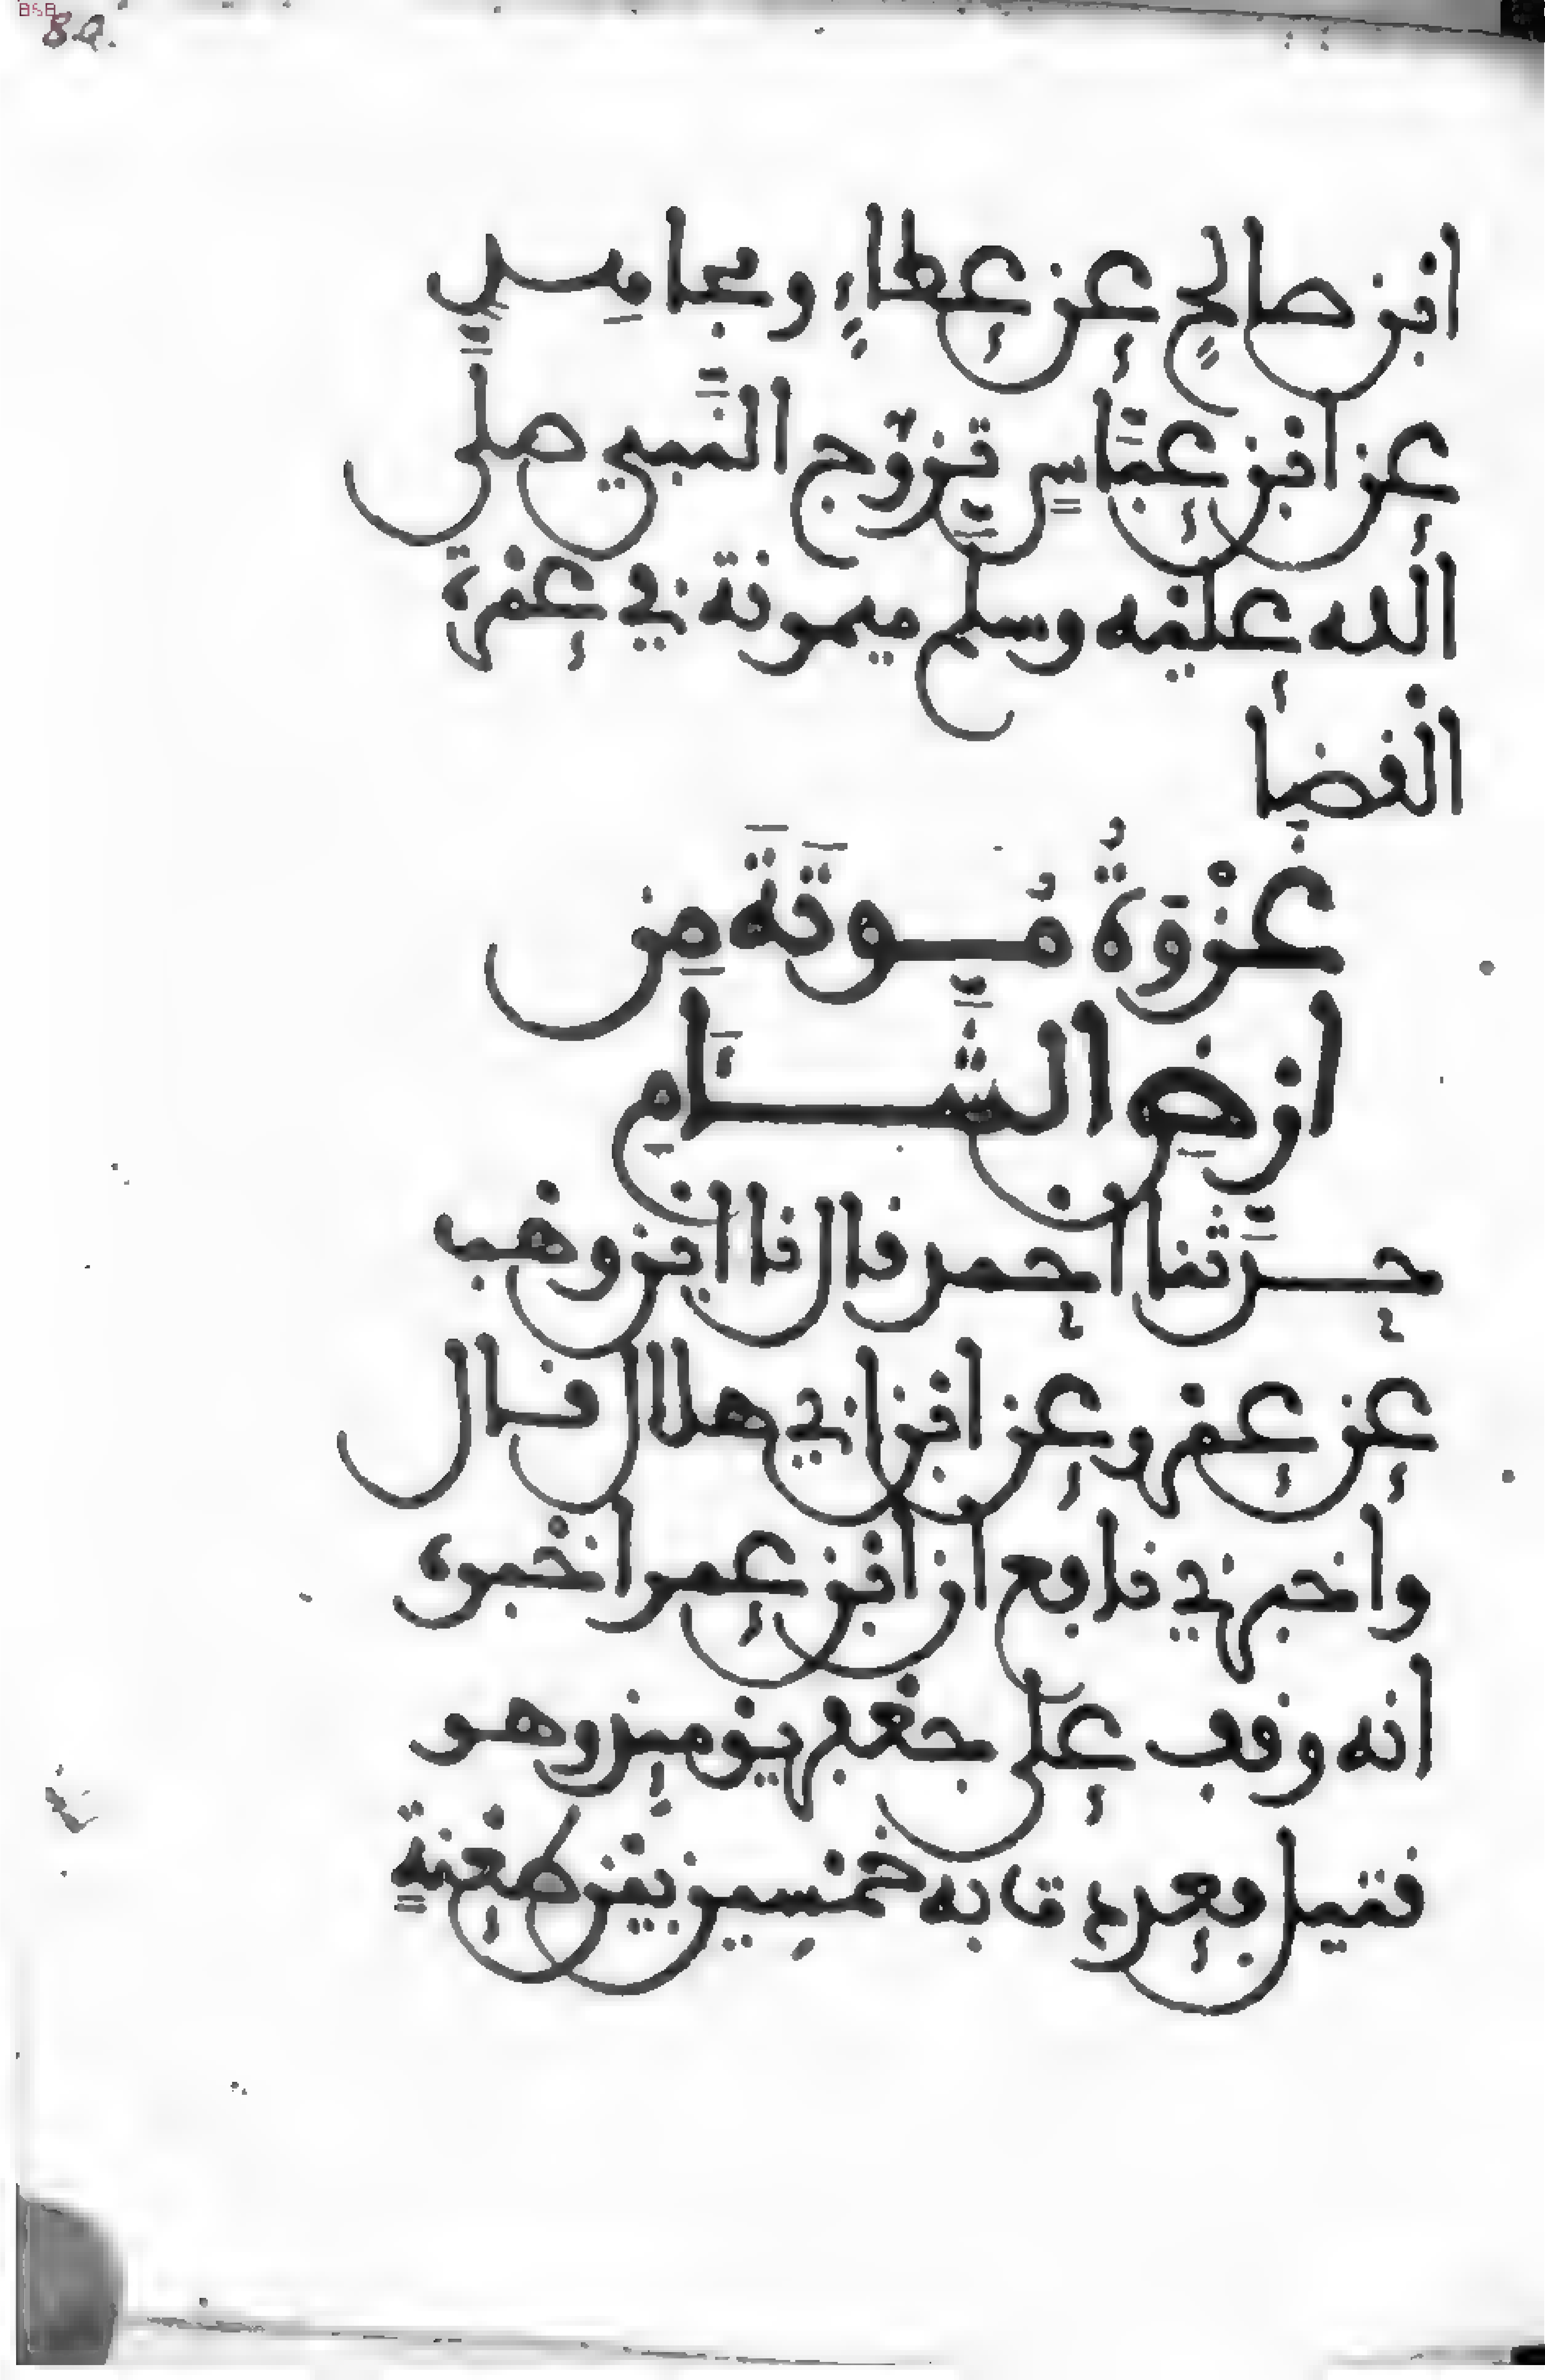 8a.
ابن صالحٍ عن عطاءٍ ومجاهِدٍ
عن ابن عبَّاسٍ تزوّج النَّبي صلَّى
الله عليه وسلم ميمونة في عمرة
القضا
غَزْوَةُ مُوتَةَ مِن
ارضِ الشَّامِ
حدَّثنا احمد قال نا ابن وهب
عن عمرو عن ابن ابي هلال قال
واخبرني نافع ان ابن عمر اخبره
انه وقف على جعفر يومِيذ وهو
قتيل فعددت به خمسِين بين طعنةٍ